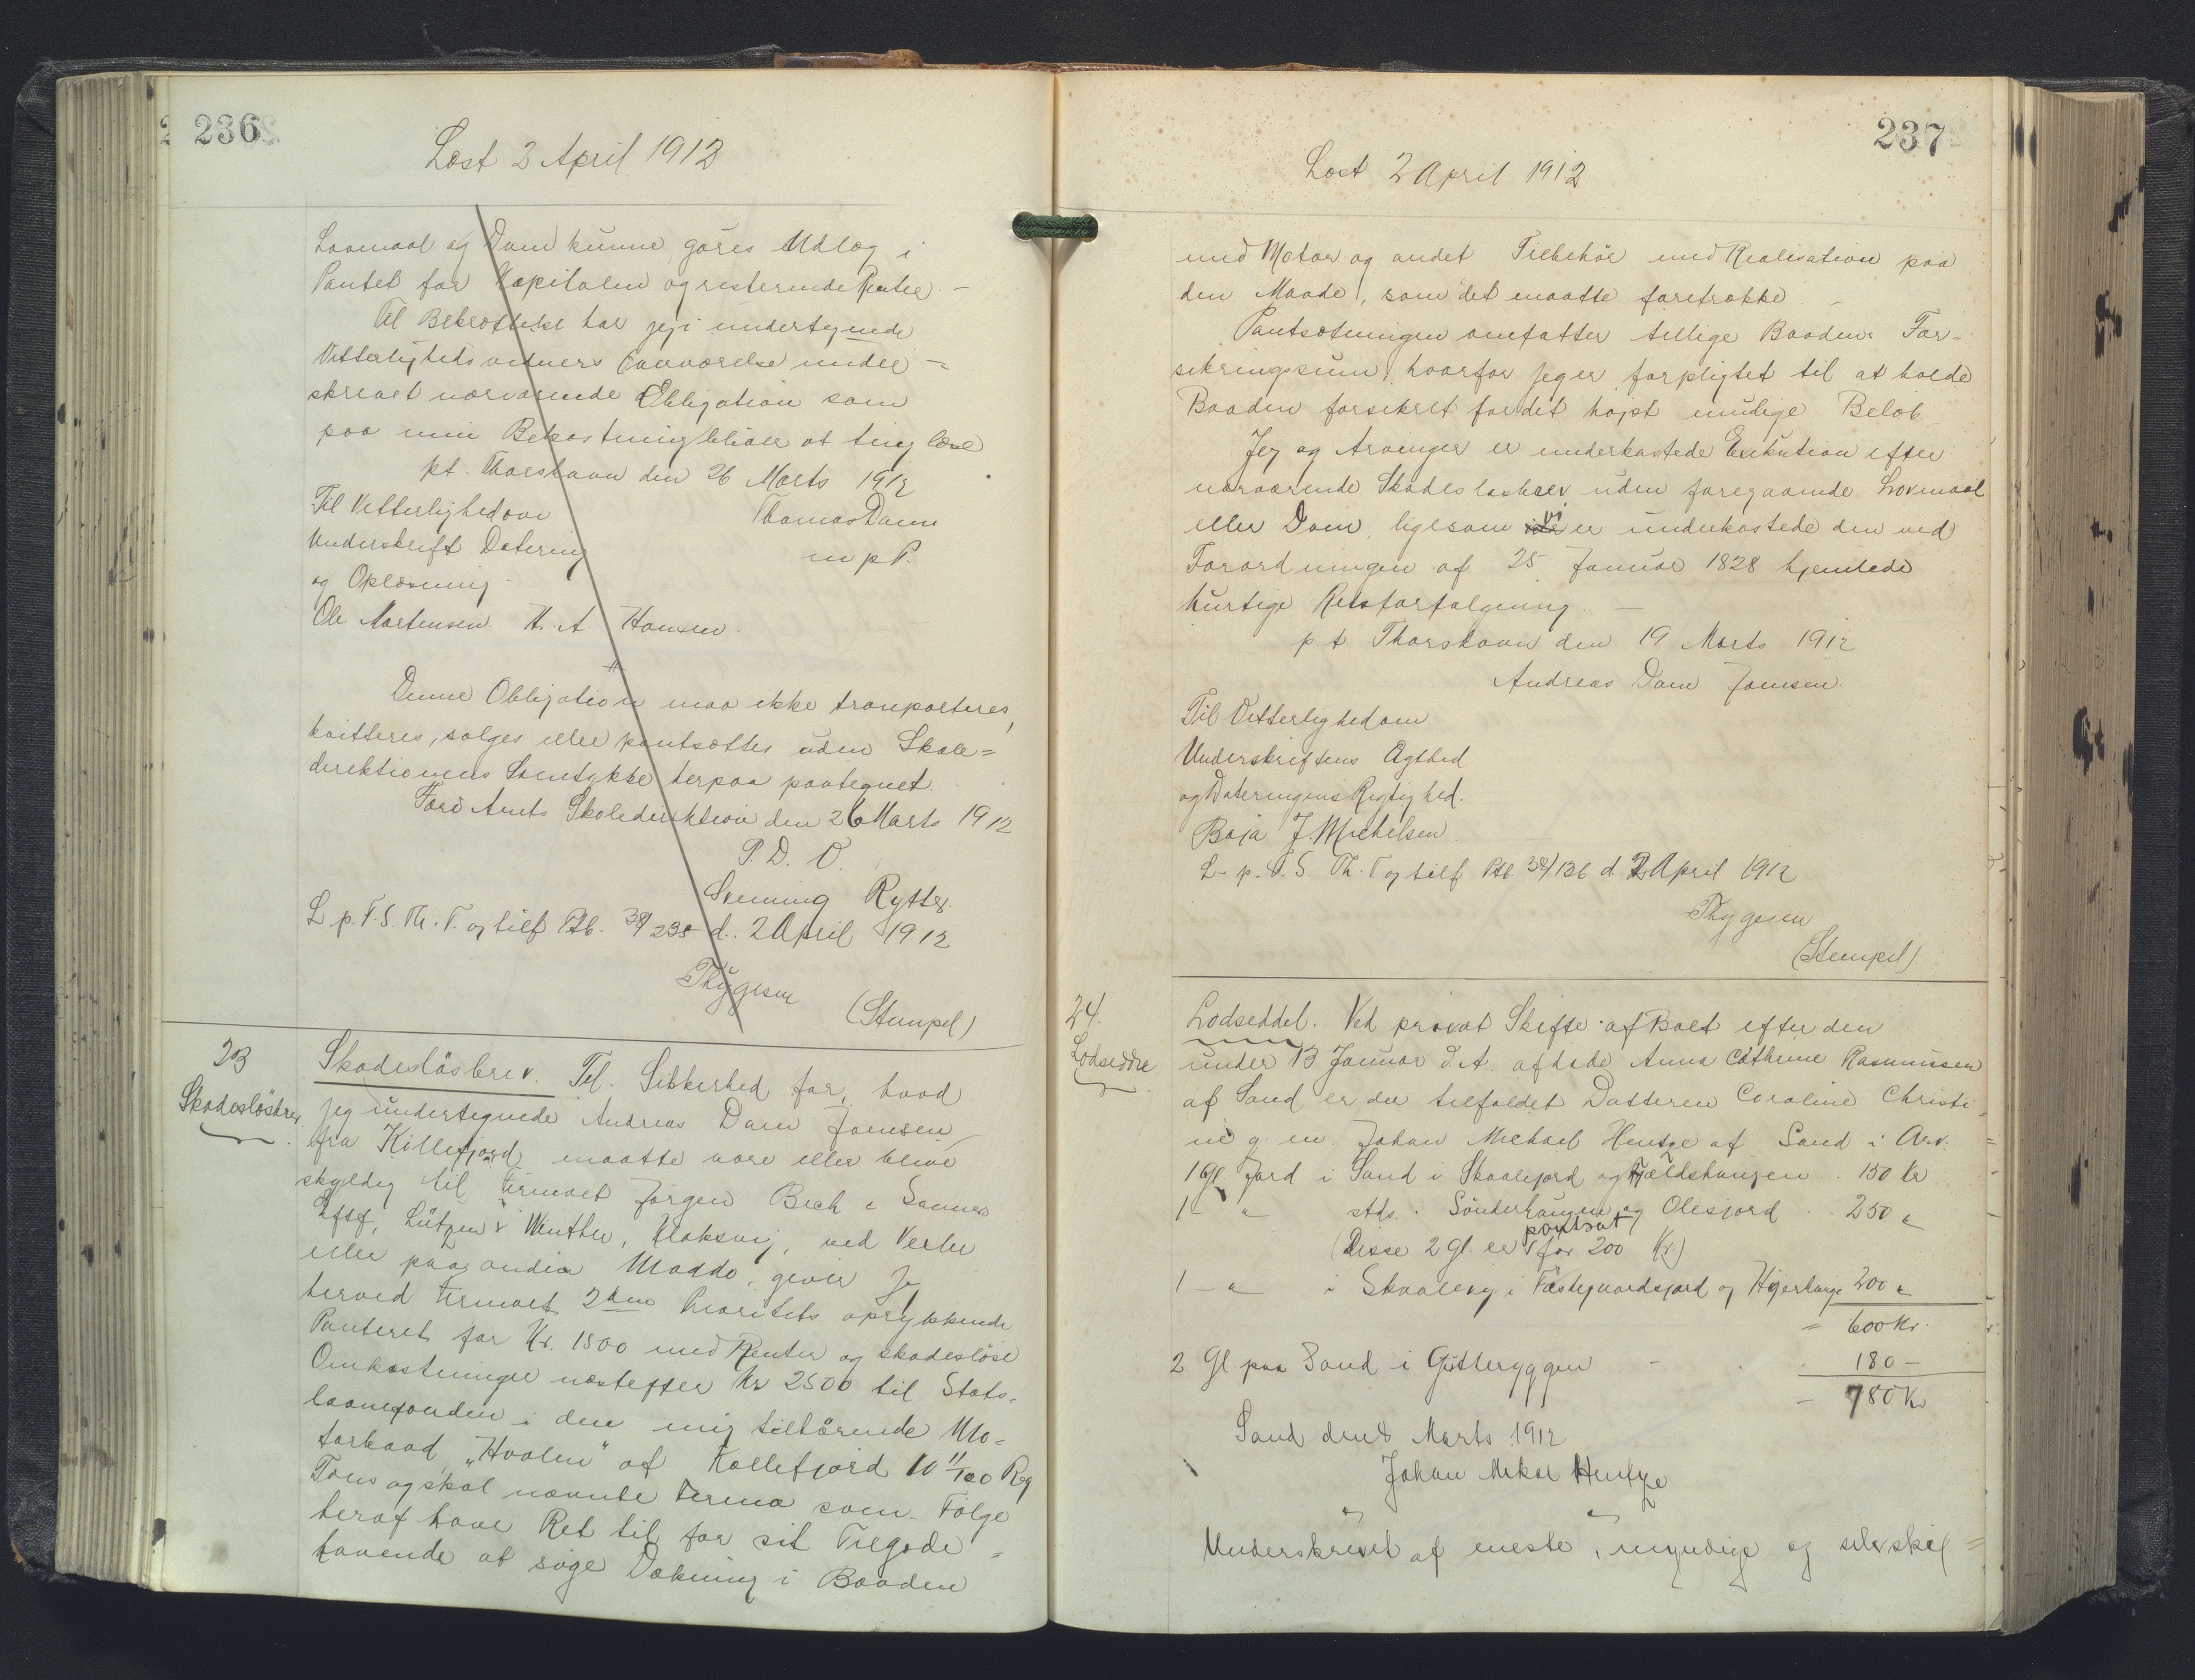 236
Læst 2 April 1912
Lovmaal og Dom kunne göres Udlæg i
Pantet for Kapitalen og resterende Renter. –
Til Bekræftelse har jeg i undertegnede
Vitterlighedsvidners Overværelse under =
skrevet nærværende Obligation som
paa min Bekostning bliver at tinglæse
pt. Thorshavn den 26 Marts 1912
Til Vitterlighed om
Thomas Dam
Underskrift Datering
m p P.
og Oplæsning
Ole Mortensen. H. A. Hansen.
Denne Obligation maa ikke transporteres,
kvitteres, sælges eller pantsættes uden Skole=
direktionens Samtykke herpaa paategnet.
Færö Amts Skoledirektion den 26 Marts 1912
P. D. V.
Svenning Rytter.
L. p. F. S. Th. T. og tilf Ptb. 38/235 d. 2 April 1912
Thygesen
(Stempel)
23
Skadesløsbrev
Skadesløsbrev. Til Sikkerhed for, hvad
jeg undertegnede Andreas Dam Joensen
fra Kollefjord maatte være eller blive
skyldig til Firmaet Jørgen Bech & Sønners
Eftf, Lützen & Winther, Klaksvig, ved Vexler
eller paa anden Maade, giver jeg
herved Firmaet 2den Prioritets oprykkende
Panteret for Kr. 1500 med Renter og skadesløse
Omkostninger næstefter Kr 2500 til Stats-
laanefonden i den mig tilhörende Mo=
torbaad „Hvalen" af Kollefjord 10 11/100 Reg
Tons og skal nævnte Firma som Følge
heraf have Ret til for sit Tilgode =
havende at søge Dækning i Baaden
237
Læst 2 April 1912
med Motor og andet Tilbehör med Realisation paa
den Maade, som det maatte foretrække. –
Pantsætningen omfatter tillige Baadens For-
sikringssum, hvorfor jeg er forpligtet til at holde
Baaden forsikret for det højst mulige Beløb
Jeg og Arvinger er underkastede Exekution efter
nærværende Skadesløsbrev uden foregaaende Lovmaal
eller Dom, ligesom vi er underkastede den ved
Forordningen af 25 Januar 1828 hjemlede
hurtige Retsforfølgning. –
p. t Thorshavn den 19 Marts 1912
Andreas Dam Joensen.
Til Vitterlighed om
Underskriftens Ægthed
og Dateringens Rigtighed.
J. Michelsen
L. p. F. S. Th. T og tilf Ptb. 38/136 d. 2 April 1912
Thygesen
(Stempel)
24.
Lodseddel
Lodseddel. Ved privat Skifte af Boet efter den
under 13 Januar d. A. afdøde Anna Cathrine Rasmussen
af Sand er der tilfaldet Datteren Caroline Christi-
ne g. m. Johan Michael Hentze af Sand i Arv.
1 Gl. Jord i Sand i Skaalejord og Fjældshaugen . 150 Kr
1 – " stds. i Sønderhaugen og Olesjord . . 250 "
(Disse 2 Gl. er pantsat for 200 Kr.)
1 – " i Skaalevig i Fæstegaardsjord og 200 "
= 600 Kr.
2 Gl. paa Sand i Gütteryggen – . . 180 –
– 780 Kr
Sand den 8 Marts 1912
Johan Mikal Hentze
Underskrevet af eneste, myndige og selvskif =